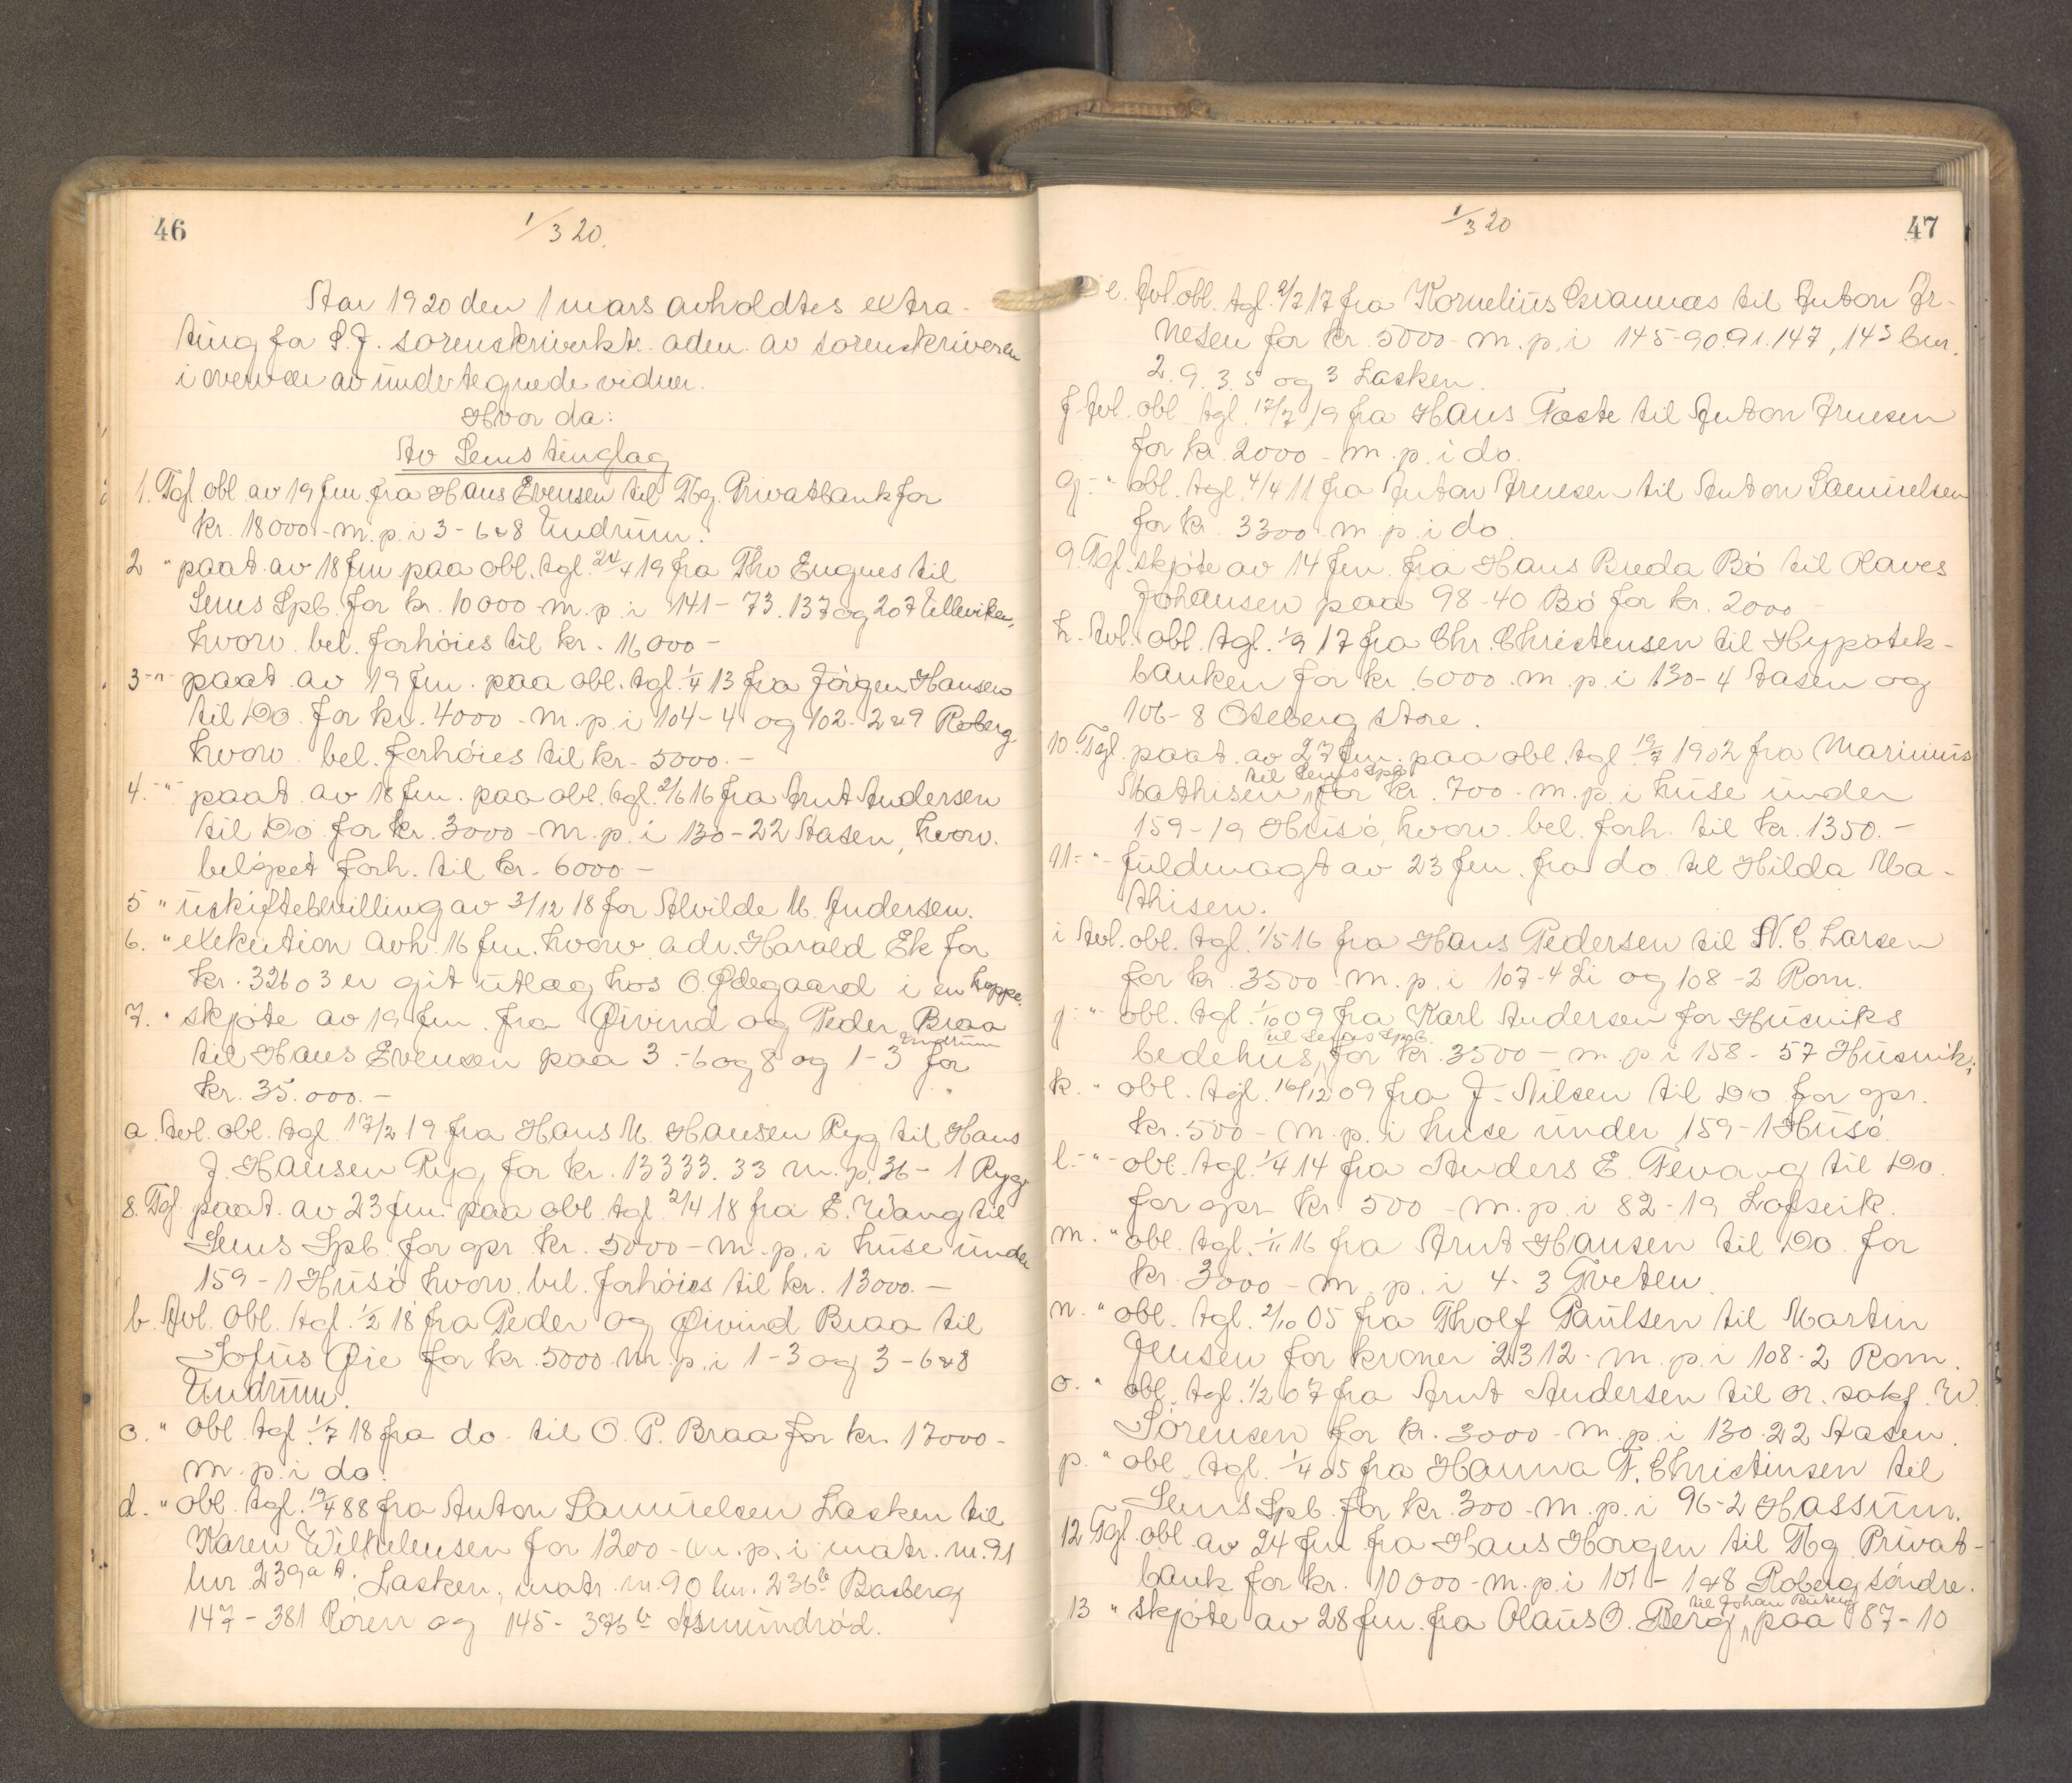 46
1/3 20.
Aar 1920 den 1 mars avholdtes extra-
ting for S.J. sorenskriverkt. adm. av sorenskriveren
i overvær av undertegnede vidner.
Hvor da:
Av Sems tinglag
1. Tgl. obl av 19 fm. fra Hans Evensen til Tbg. Privatbank for
kr. 18000 - m. p. i 3 - 6 & 8 Undrum.
2 " paat. av 18 fm paa obl. tgl. 24/4 19 fra Thv Engnes til
Sems Spb. for kr. 10000 - m. p. i 141 - 73. 137 og 207 Ulleviken,
hvorv. bel. forhöies til kr. 16000 -
3 - " - paat. av 19 fm. paa obl. tgl. 1/4 13 fra Jörgen Hansen
til Do. for kr. 4000 - m. p. i 104 - 4 og 102 - 2 & 9 Roberg
hvorv. bel. forhöies til kr. 5000. -
4. - " paat. av 18 fm. paa obl. tgl. 2/6 16 fra Arnt Andersen
til Do for kr. 3000 - m. p. i 130 - 22 Aasen, hvorv.
belöpet forh. til kr. 6000 -
5 " uskiftebevilling av 3/12 18 for Alvilde M. Andersen.
6. " exekution avh. 16 fm. hvorv. adv. Harald Ek for
kr. 326 03 er git utlæg hos O. Ødegaard i en hoppe.
7. " skjöte av 19 fm. fra Øivind og Peder Braa
til Hans Evensen paa 3 - 6 og 8 og 1 - 3 Undrum for
kr. 35.000. -
a. Avl. obl. tgl. 17/2 19 fra Hans M. Hansen Ryg til Hans
J. Hansen Ryg for kr. 13333.33 m. p. 36 - 1 Ryg
8. Tgl. paat. av 23 fm. paa obl. tgl. 2/4 18 fra E. Wang til
Sems Spb. for opr. kr. 5000 - m. p. i huse under
159 - 1 Husö hvorv. bel. forhöies til kr. 13000. -
b. Avl. obl. tgl. 1/2 18 fra Peder og Øivind Braa til
Sofus Øie for kr. 5000 m. p. i 1 - 3 og 3 - 6 & 8
Undrum.
c. " obl. tgl. 1/7 18 fra do. til O. P. Braa for kr. 17000 -
m. p. i do.
d. " obl. tgl. 19/4 88 fra Anton Samuelsen Lasken til
Karen Wilhelmsen for 1200 - m. p. i matr. nr. 91
lnr 239 a t. Lasken, matr. nr. 90 lnr. 236 b Basberg
147 - 381 Roren og 145 - 376 b Asmundröd.
47
1/3 20
e. Avl. obl. tgl. 2/7 17 fra Kornelius Evannæs til Anton Ar-
nesen for kr. 5000 - m. p. i 145 - 90. 91. 147, 143 bnr.
2. 9. 3. 5 og 3 Lasken.
f. Avl. obl. tgl. 17/7 19 fra Hans Tæste til Anton Arnesen
for kr. 2000 - m. p. i do.
g. - " obl. tgl. 4/4 11 fra Anton Arnesen til Anton Samuelsen
for kr. 3300 m. p. i do.
9. Tgl. skjöte av 14 fm. fra Hans Breda Bö til Olaves
Johansen paa 98 - 40 Bö for kr. 2000 -
h. Avl. obl. tgl. 1/9 17 fra Chr. Christensen til Hypotek-
banken for kr. 6000. m. p. i 130 - 4 Aasen og
106 - 8 Oseberg store.
10. Tgl. paat. av 27 fm. paa obl. tgl. 19/7 1902 fra Marinius
Mathisen til Sems Spb. for kr. 700 - m. p. i huse under
159 - 19 Husö, hvorv. bel. forh. til kr. 1350. -
11. - " - fuldmagt av 23 fm. fra do. til Hilda Ma-
thisen.
i Avl. obl. tgl. 1/5 16 fra Hans Pedersen til N. C. Larsen
for kr. 3500 - m. p. i 107 - 4 Li og 108 - 2 Rom.
j. " - obl. tgl. 1/10 09 fra Karl Andersen for Husviks
bedehus, til Sems Spb. for kr. 3500 - m. p. i 158 - 57 Husvik,
k. " obl. tgl. 16/12 09 fra J. Nilsen til Do for opr.
kr. 500 - m. p. i huse under 159 - 1 Husö.
l. - " - obl. tgl. 1/4 14 fra Anders E. Tevang til Do.
for opr kr. 500 - m. p. i 82 - 19 Lofseik.
m. " obl. tgl. 1/11 16 fra Arnt Hansen til Do. for
kr. 3000 - m. p. i 4 - 3 Tveten.
n. " obl. tgl. 2/10 05 fra Tholf Paulsen til Martin
Jensen for kroner 2312 - m. p. i 108 - 2 Rom.
o. " obl. tgl. 1/2 07 fra Arnt Andersen til or. sakf. W.
Sörensen for kr. 3000 - m. p. i 130. 22 Aasen.
p. " obl. tgl. 1/4 05 fra Hanna F. Christensen til
Sems Spb. for kr. 300 - m. p. i 96 - 2 Hassum.
12 Tgl. obl. av 24 fm fra Hans Horgen til Tbg. Privat-
bank for kr. 10000 - m. p. i 101 - 1 & 8 Roberg söndre.
13 " skjöte av 28 fm. fra Olaus O. Berg, til Johan Buberg paa 87 - 10